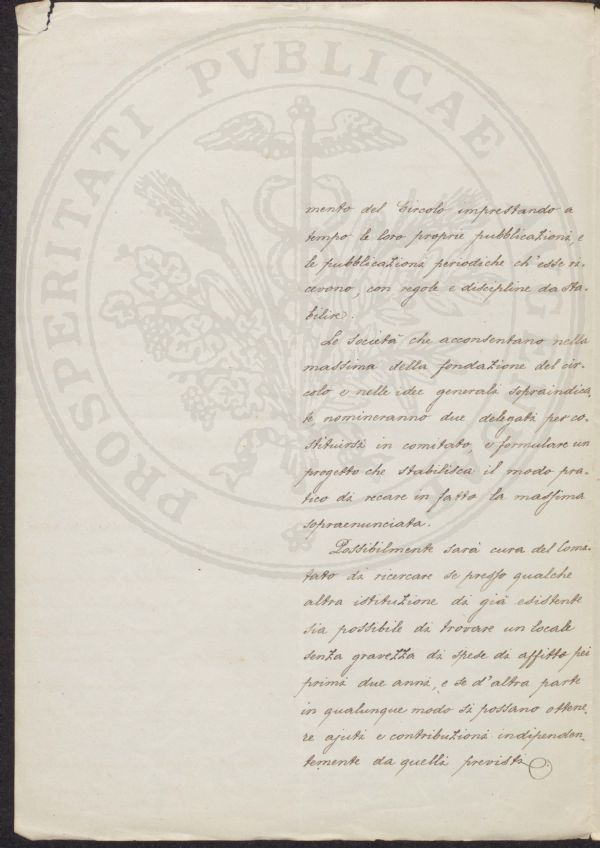 PROSPERITATI PVBLICAE
mento del Circolo imprestando a
tempo le loro proprie pubblicazioni e
le pubblicazioni periodiche ch'esse ri-
cevono, con regole e discipline da sta-
bilire.
Le società che acconsentano nella
massima della fondazione del cir-
colo e nelle idee generali sopraindica-
te nomineranno due delegati per co-
stituirsi in comitato, e formulare un
progetto che stabilisca il modo pra-
tico di recare in fatto la massima
sopraenunciata.
Possibilmente sarà cura del Comi-
tato di ricercare se presso qualche
altra istituzione di già esistente
sia possibile di trovare un locale
senza gravezza di spese di affitto pei
primi due anni, e se d'altra parte
in qualunque modo si possano ottene-
re ajuti e contribuzioni indipenden-
temente da quelli previsti.